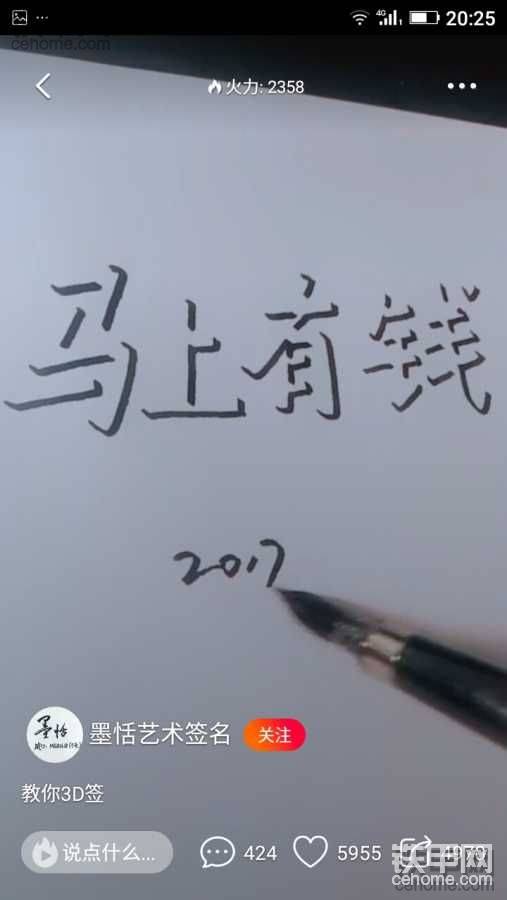 4G 20:25
cehome.com
火力: 2358
马上有钱
2017
墨恬艺术签名 关注
教你3D签
说点什么... 424 5955 4979
铁甲网
cehome.com